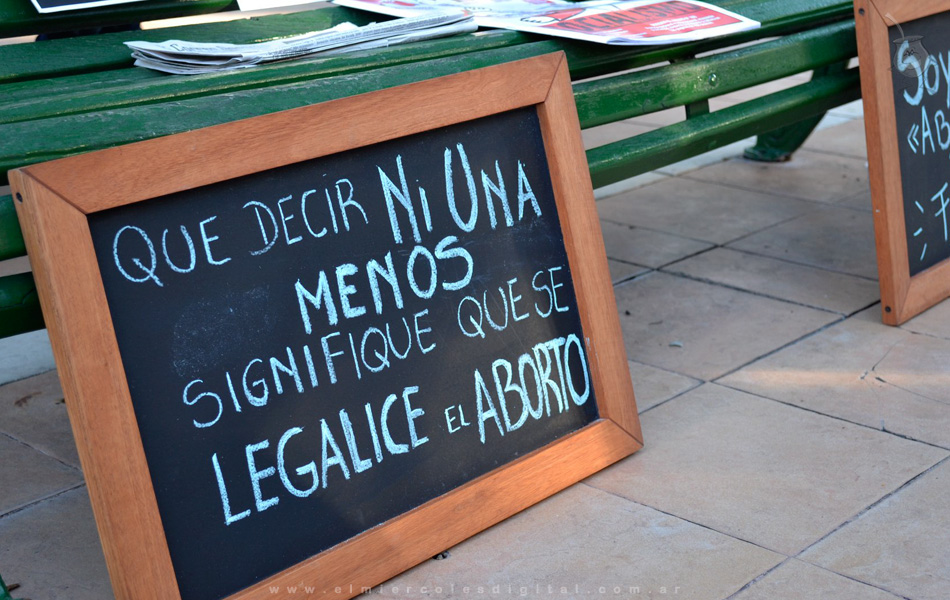 QUE DECIR Ni UNA
MENOS
SIGNIFIQUE QUE SE
LEGALICE EL ABORTO
SOY
«AB
www.elmiercolesdigital.com.ar